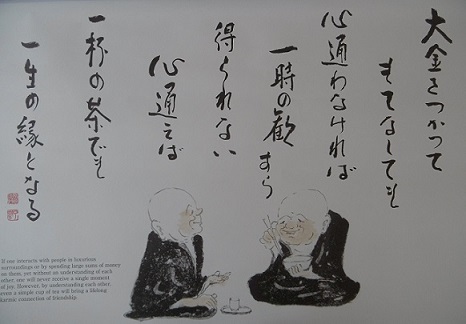 大金をつかって
もてなしても
心通わなければ
一時の歓すら
得られない
心通えば
一杯の茶でも
一生の縁となる
If one interacts with people in luxurious
surroundings or by spending large sums of money
on them, yet without an understanding of each
other, one will never receive a single moment
of joy. However, by understanding each other,
even a simple cup of tea will bring a lifelong
karmic connection of friendship.